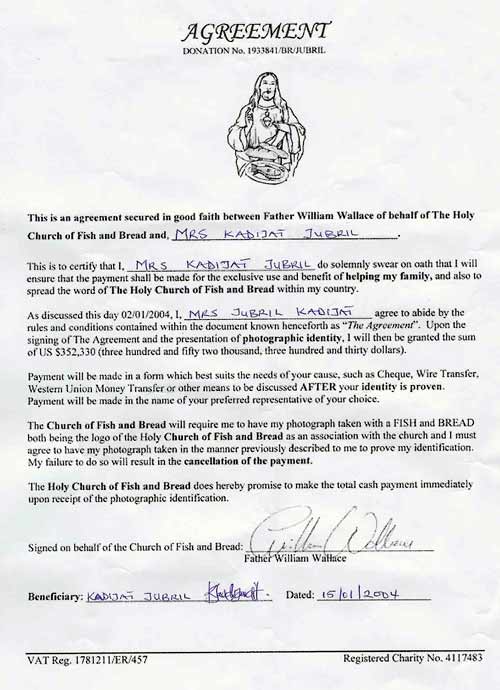 AGREEMENT
DONATION No. 1933841/BR/JUBRIL
This is an agreement secured in good faith between Father William Wallace of behalf of The Holy
Church of Fish and Bread and, MRS KADIJAT JUBRIL.
This is to certify that I, MRS KADIJAT JUBRIL do solemnly swear on oath that I will
ensure that the payment shall be made for the exclusive use and benefit of helping my family, and also to
spread the word of The Holy Church of Fish and Bread within my country.
As discussed this day 02/01/2004, I, MRS JUBRIL KADIJAT agree to abide by the
rules and conditions contained within the document known henceforth as "The Agreement". Upon the
signing of The Agreement and the presentation of photographic identity, I will then be granted the sum
of US $352,330 (three hundred and fifty two thousand, three hundred and thirty dollars).
Payment will be made in a form which best suits the needs of your cause, such as Cheque, Wire Transfer,
Western Union Money Transfer or other means to be discussed AFTER your identity is proven.
Payment will be made in the name of your preferred representative of your choice.
The Church of Fish and Bread will require me to have my photograph taken with a FISH and BREAD
both being the logo of the Holy Church of Fish and Bread as an association with the church and I must
agree to have my photograph taken in the manner previously described to me to prove my identification.
My failure to do so will result in the cancellation of the payment.
The Holy Church of Fish and Bread does hereby promise to make the total cash payment immediately
upon receipt of the photographic identification.
Signed on behalf of the Church of Fish and Bread: William Wallace
Father William Wallace
Beneficiary: KADIJAT JUBRIL Dated: 15/01/2004
VAT Reg. 1781211/ER/457 Registered Charity No. 4117483